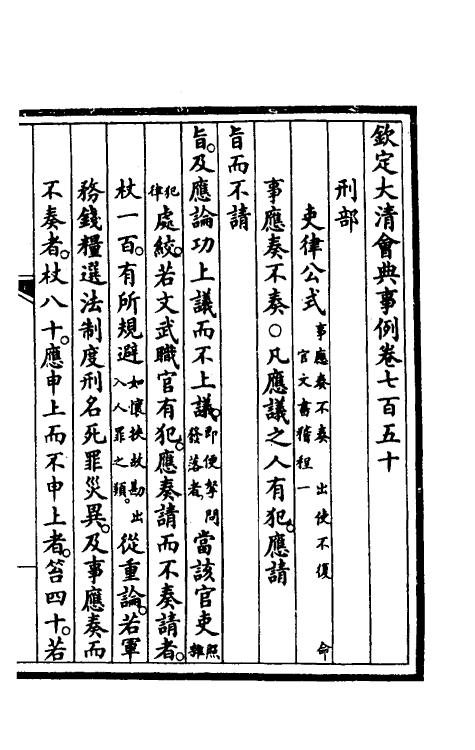 欽定大清會典事例卷七百五十
刑部
吏律公式 事應奏不奏 出使不復 命 官文書稽程一
事應奏不奏○凡應議之人有犯。應請
旨而不請
旨。及應論功上議而不上議。即便拏問發落者。當該官吏照雜
犯律處絞。若文武職官有犯。應奏請而不奏請者。
杖一百。有所規避如懷挾故勘出入人罪之類。從重論。若軍
務錢糧選法制度刑名死罪災異。及事應奏而
不奏者。杖八十。應申上而不申上者。笞四十。若